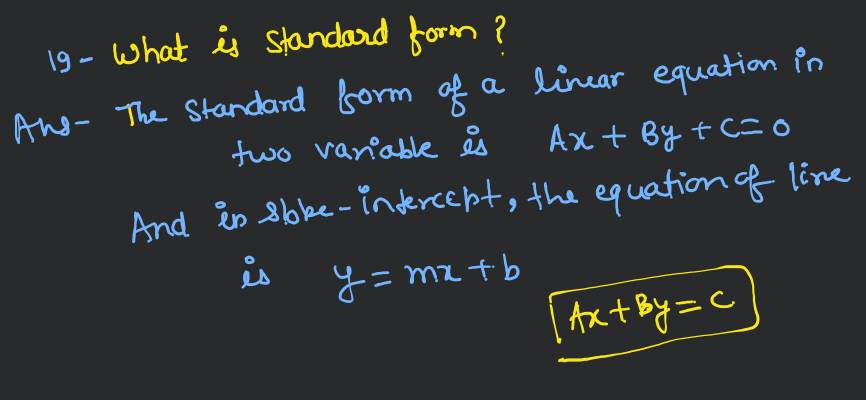 19- What is standard form?
Ans- The standard form of a linear equation in
two variable is Ax + By + C = 0
And in slope-intercept, the equation of line
is y = mx + b
Ax + By = C